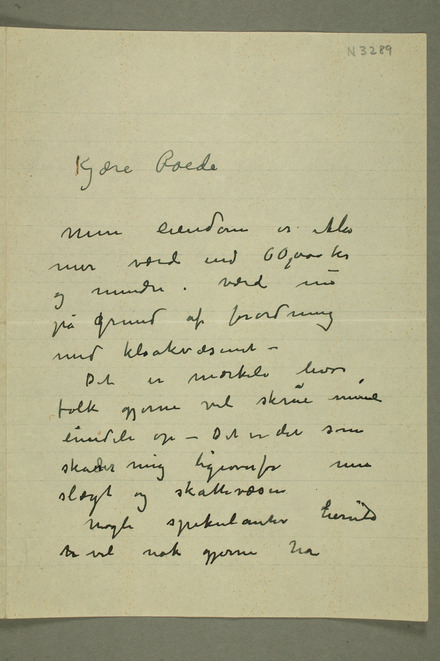 N 3289
Kjære Roede
Min eiendom er ikke
mer værd end 60,000 kr
og mindre værd nu
på grund af forordning
med kloakvæsenet –
Det er mærkelig hvor
folk gjerne vil skrue mine
op – Det er det som
skader mig ligeoverfor min
slægt og skattevæsen
Nogle spekulanter
vil nok gjerne ha